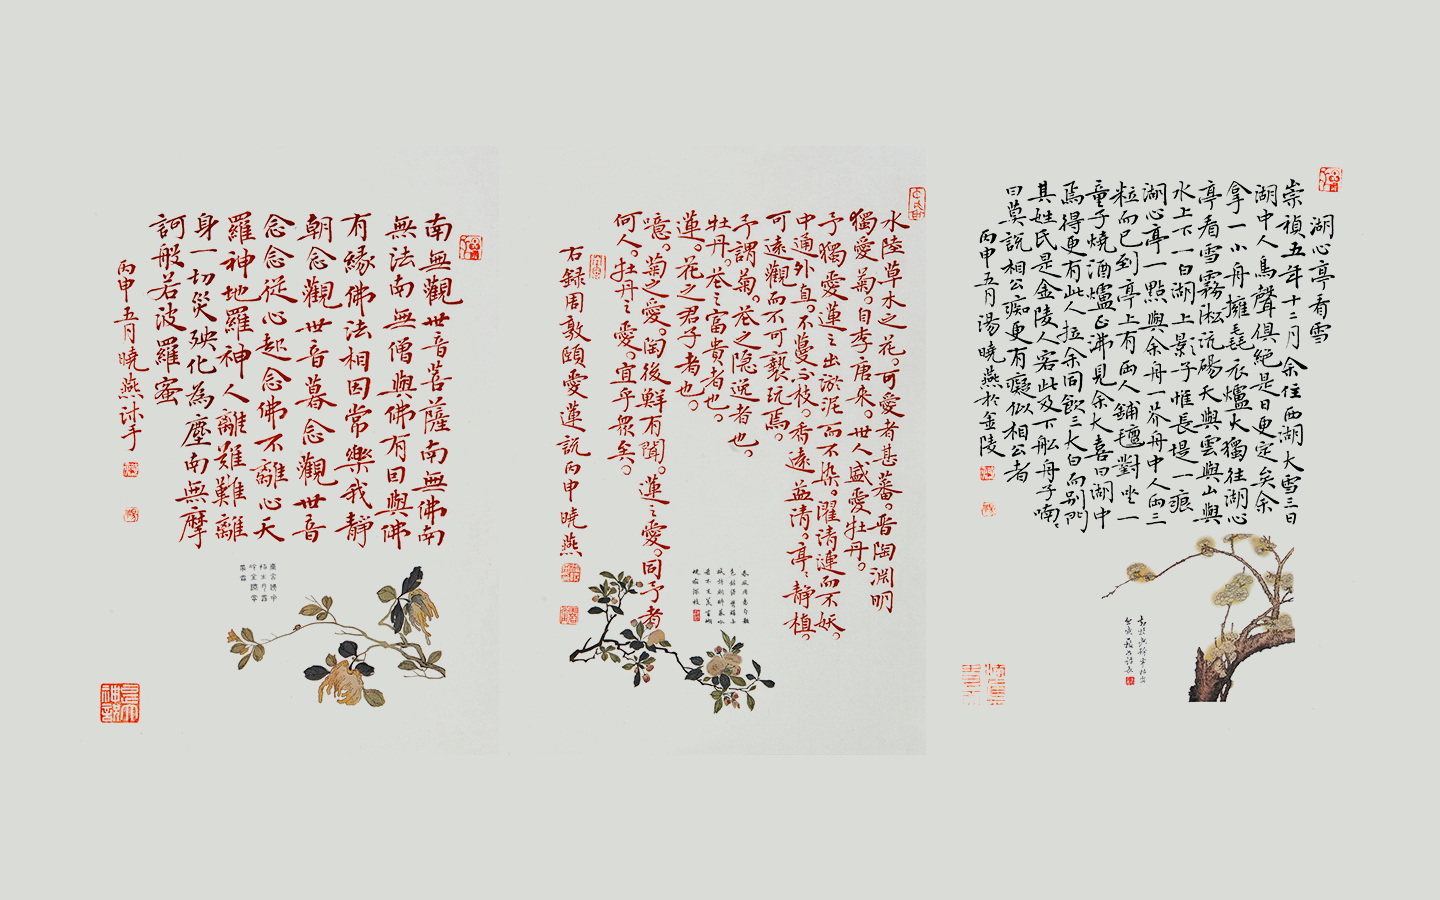 湖心亭看雪
崇禎五年十二月余住西湖大雪三日
湖中人鳥聲俱絕是日更定矣余
拿一小舟擁毳衣爐火獨往湖心
亭看雪霧淞沆碭天與雲與山與
水上下一白湖上影子惟長堤一痕
湖心亭一點與余舟一芥舟中人兩三
粒而已到亭上有兩人鋪氈對坐一
童子燒酒爐正沸見余大喜曰湖中
焉得更有此人拉余同飲三大白而别問
其姓氏是金陵人客此及下船舟子喃〻
曰莫說相公痴更有癡似相公者
丙申五月湯曉燕於金陵
水陸草木之花。可愛者甚蕃。晋陶渊明
獨愛菊。自李唐來。世人盛愛牡丹。
予獨愛蓮之出淤泥而不染。濯清漣而不妖。
中通外直。不蔓不枝。香遠益清。亭〻静植。
可遠觀而不可褻玩焉。
予謂菊。花之隐逸者也。
牡丹。花之富貴者也。
蓮。花之君子者也。
噫。菊之愛。陶後鮮有聞。蓮之愛。同予者
何人。牡丹之愛。宜乎衆矣。
右録周敦頤愛蓮説丙申曉燕
南無觀世音菩薩南無佛南
無法南無僧與佛有因與佛
有緣佛法相因常樂我静
朝念觀世音暮念觀世音
念念從心起念佛不離心天
羅神地羅神人離難難離
身一切災殃化為塵南無摩
訶般若波羅蜜
丙申五月曉燕沐手